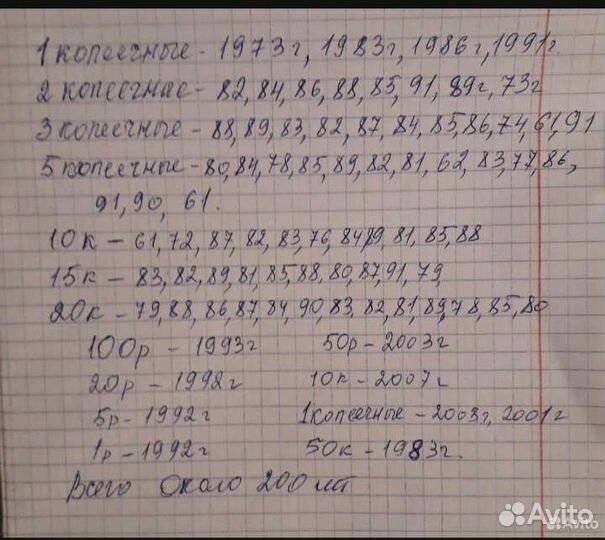 1 копеечные - 1973 г, 1983 г, 1986 г, 1991 г.
2 копеечные - 82, 84, 86, 88, 85, 91, 89 г, 73 г
3 копеечные - 88, 89, 83, 82, 87, 84, 85, 86, 74, 61, 91
5 копеечные - 80, 84, 78, 85, 89, 82, 81, 62, 83, 77, 86,
91, 90, 61.
10 к - 61, 72, 87, 82, 83, 76, 84, 89, 81, 85, 88
15 к - 83, 82, 89, 81, 85, 88, 80, 87, 91, 79,
20 к - 79, 88, 86, 87, 84, 90, 83, 82, 81, 89, 78, 85, 80
100 р - 1993 г 50 р - 2003 г
20 р - 1992 г 10 к - 2007 г
5 р - 1992 г 1 копеечные - 2003 г, 2001 г
1 р - 1992 г 50 к - 1983 г.
Всего около 200 шт
Avito
Avito